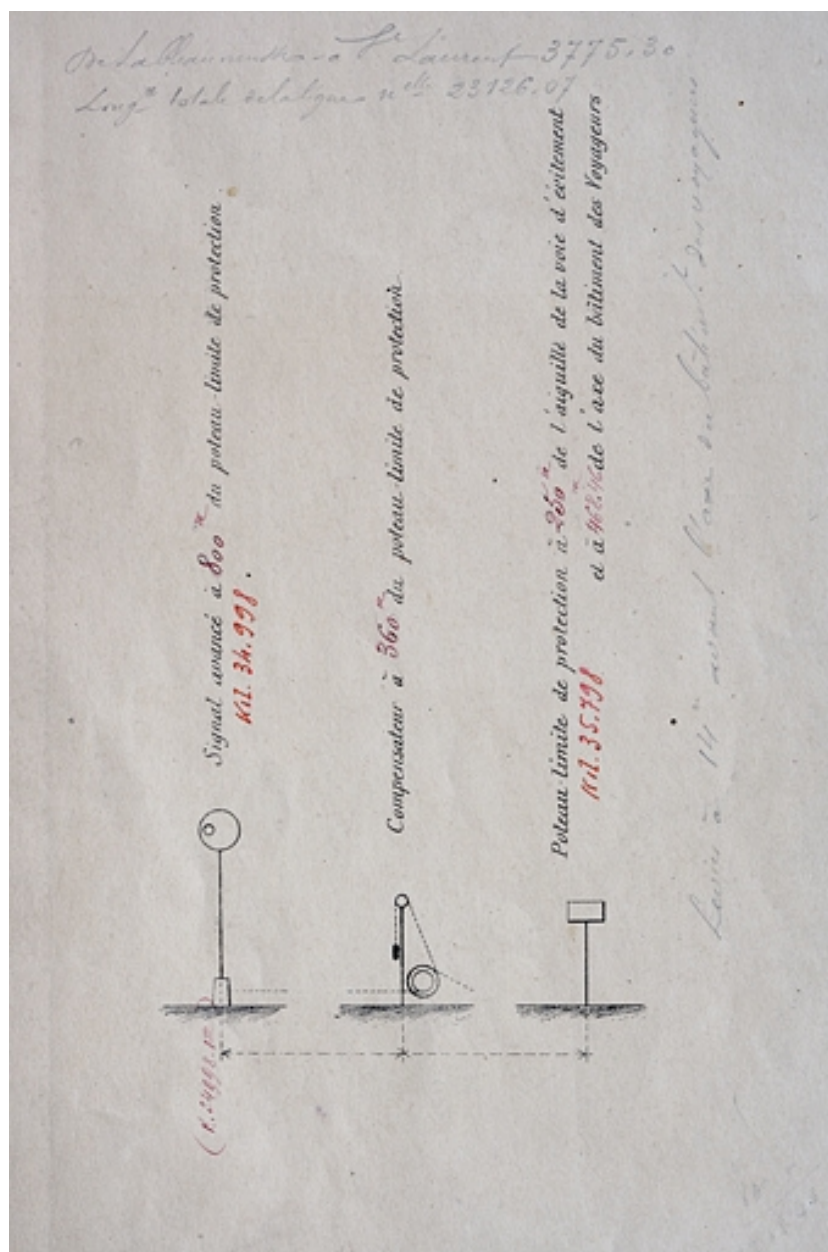 St Laurent 3775.30
Longr totale de la ligne nelle 23126.07
Signal avancé à 800m du poteau-limite de protection
Kil. 34.998.
Compensateur à 360m du poteau-limite de protection.
Poteau-limite de protection à 250m de l'aiguille de la voie d'évitement
et à 468.46m de l'axe du bâtiment des Voyageurs
Kil. 35.798
Levier à 14m avant l'axe du bâtiment des voyageurs